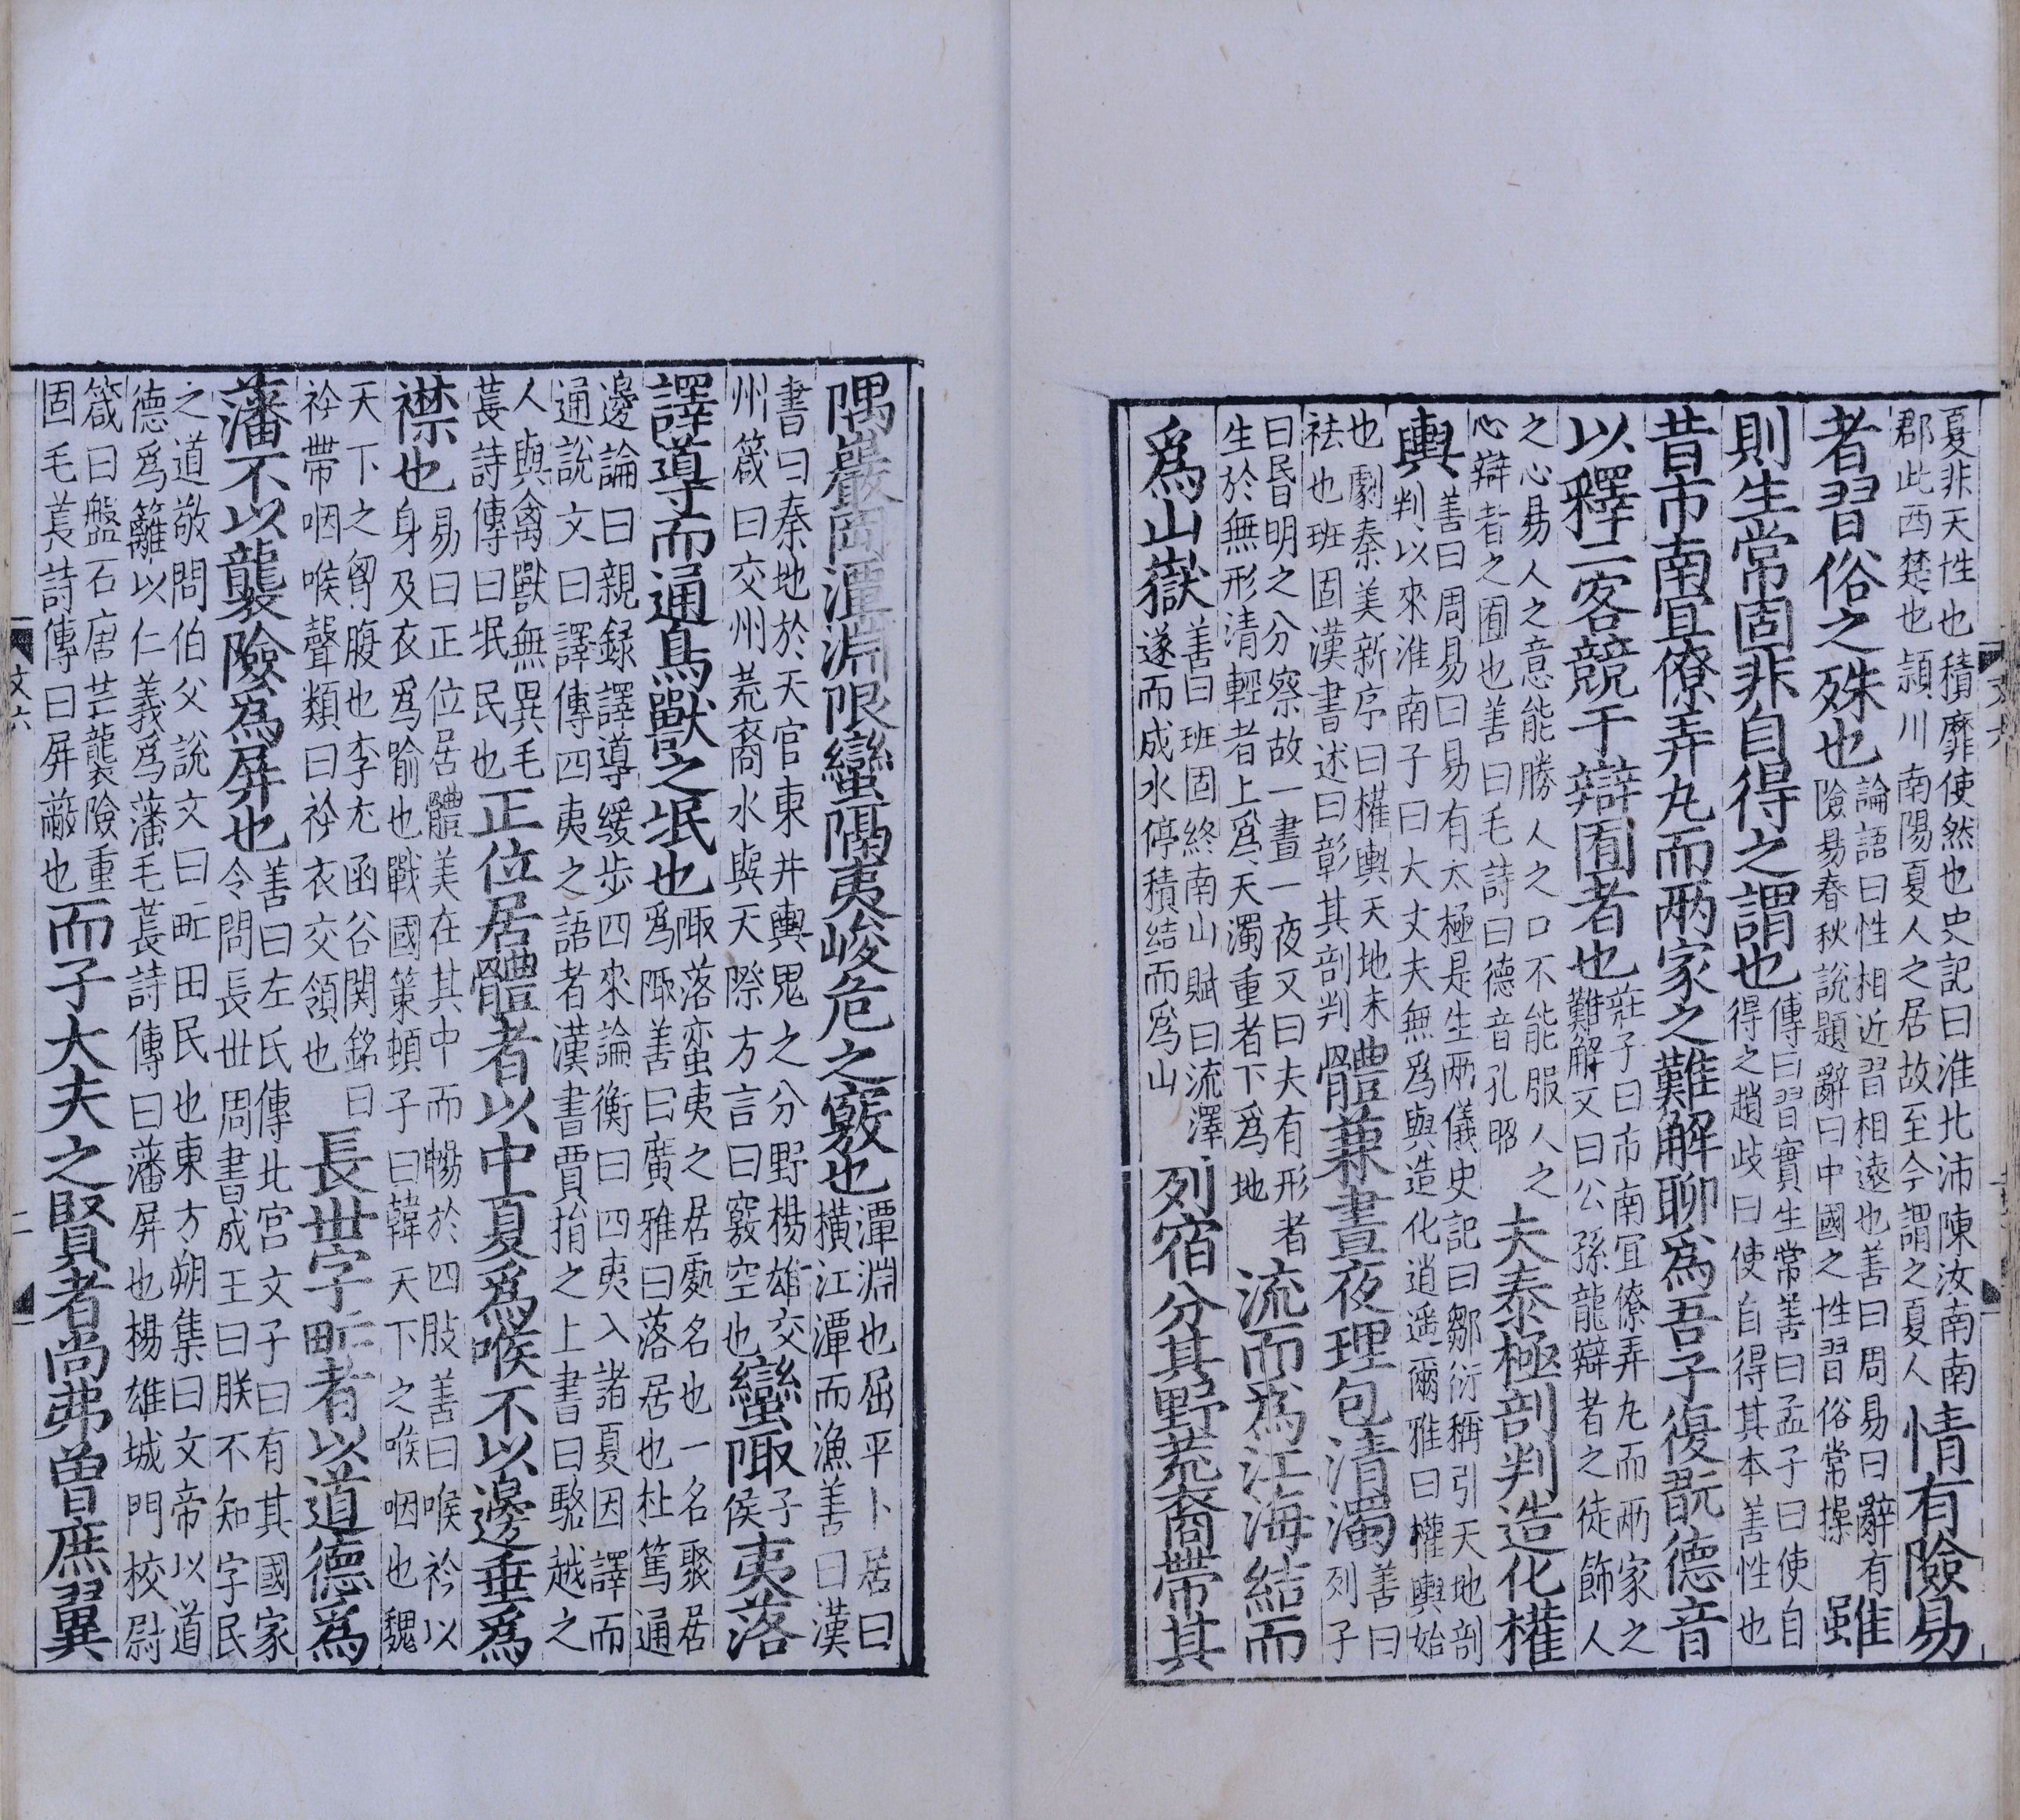 夏非天性也積靡使然也史記曰淮北沛陳汝南南
郡此西楚也潁川南陽夏人之居故至今謂之夏人
情有險易
者習俗之殊也
論語曰性相近習相遠也善曰周易曰辭有
險易春秋說題辭曰中國之性習俗常操
雖
則生常固非自得之謂也
傳曰習實生常善曰孟子曰使自
得之趙歧曰使自得其本善性也
昔市南宜僚弄丸而兩家之難解聊爲吾子復翫德音
以釋二客競于辯囿者也
莊子曰市南宜僚弄丸而兩家之
難解又曰公孫龍辯者之徒飾人
之心易人之意能勝人之口不能服人之
心辯者之囿也善曰毛詩曰德音孔昭
夫泰極剖判造化權
輿
善曰周易曰易有太極是生兩儀史記曰鄒衍稱引天地剖
判以來淮南子曰大丈夫無爲與造化逍遥爾雅曰權輿始
也劇秦美新序曰權輿天地未
袪也班固漢書述曰彰其剖判
體兼晝夜理包清濁
善曰
列子
曰昏明之分察故一晝一夜又曰夫有形者
生於無形清輕者上爲天濁重者下爲地
流而為江海結而
爲山嶽
善曰班固終南山賦曰流澤
遂而成水停積結而爲山
列宿分其野荒裔帶其
隅巖岡潭淵限蠻隔夷峻危之竅也
潭淵也屈平卜居曰
橫江潭而漁善曰漢
書曰秦地於天官東井輿鬼之分野楊雄交
州箴曰交州荒裔水與天際方言曰竅空也
蠻陬
子
侯
夷落
譯導而通鳥獸之氓也
陬落蛮夷之居處名也一名聚居
爲陬善曰廣雅曰落居也杜篤通
邊論曰親録譯導緩步四來論衡曰四夷入諸夏因譯而
通說文曰譯傳四夷之語者漢書賈捐之上書曰駱越之
人與禽獸無異毛
萇詩傳曰氓民也
正位居體者以中夏爲喉不以邊垂爲
襟也
易曰正位居體美在其中而暢於四肢善曰喉衿以
身及衣爲喻也戰國策頓子曰韓天下之喉咽也魏
天下之胷腹也李尤函谷関銘曰
衿帶咽喉聲類曰衿衣交領也
長世字甿者以道德為
藩不以襲險爲屏也
善曰左氏傳北宮文子曰有其國家
令問長世周書成王曰朕不知字民
之道敬問伯父說文曰甿田民也東方朔集曰文帝以道
德爲籬以仁義爲藩毛萇詩傳曰藩屏也楊雄城門校尉
箴曰盤石唐芒襲險重
固毛萇詩傳曰屏蔽也
而子大夫之賢者尚弗曾庶翼
文六
二